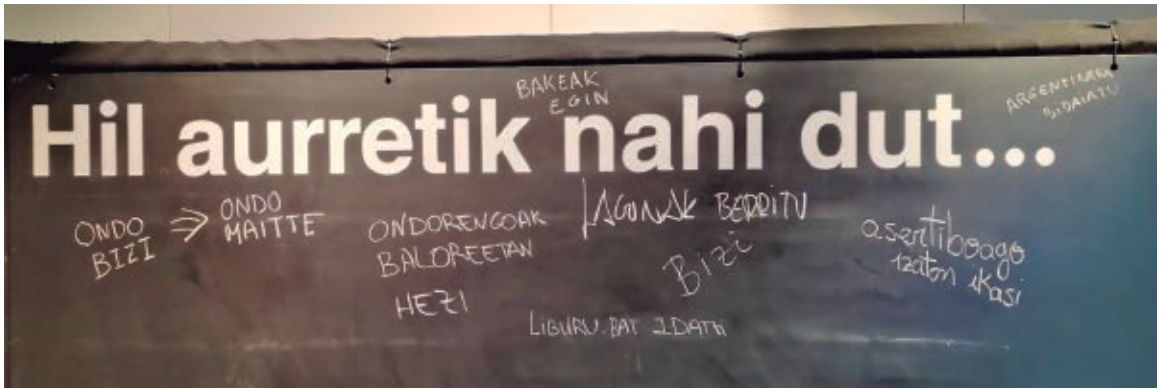 Hil aurretik nahi dut...
BAKEAK
EGIN
ARGENTINARA
BIDAIATU
ONDO
BIZI
⇒ ONDO
MAITTE
ONDORENGOAK
BALOREETAN
HEZI
LAGUNAK BERRITU
Bizi
LIBURU BAT IDATZI
asertiboago
izaten ikasi